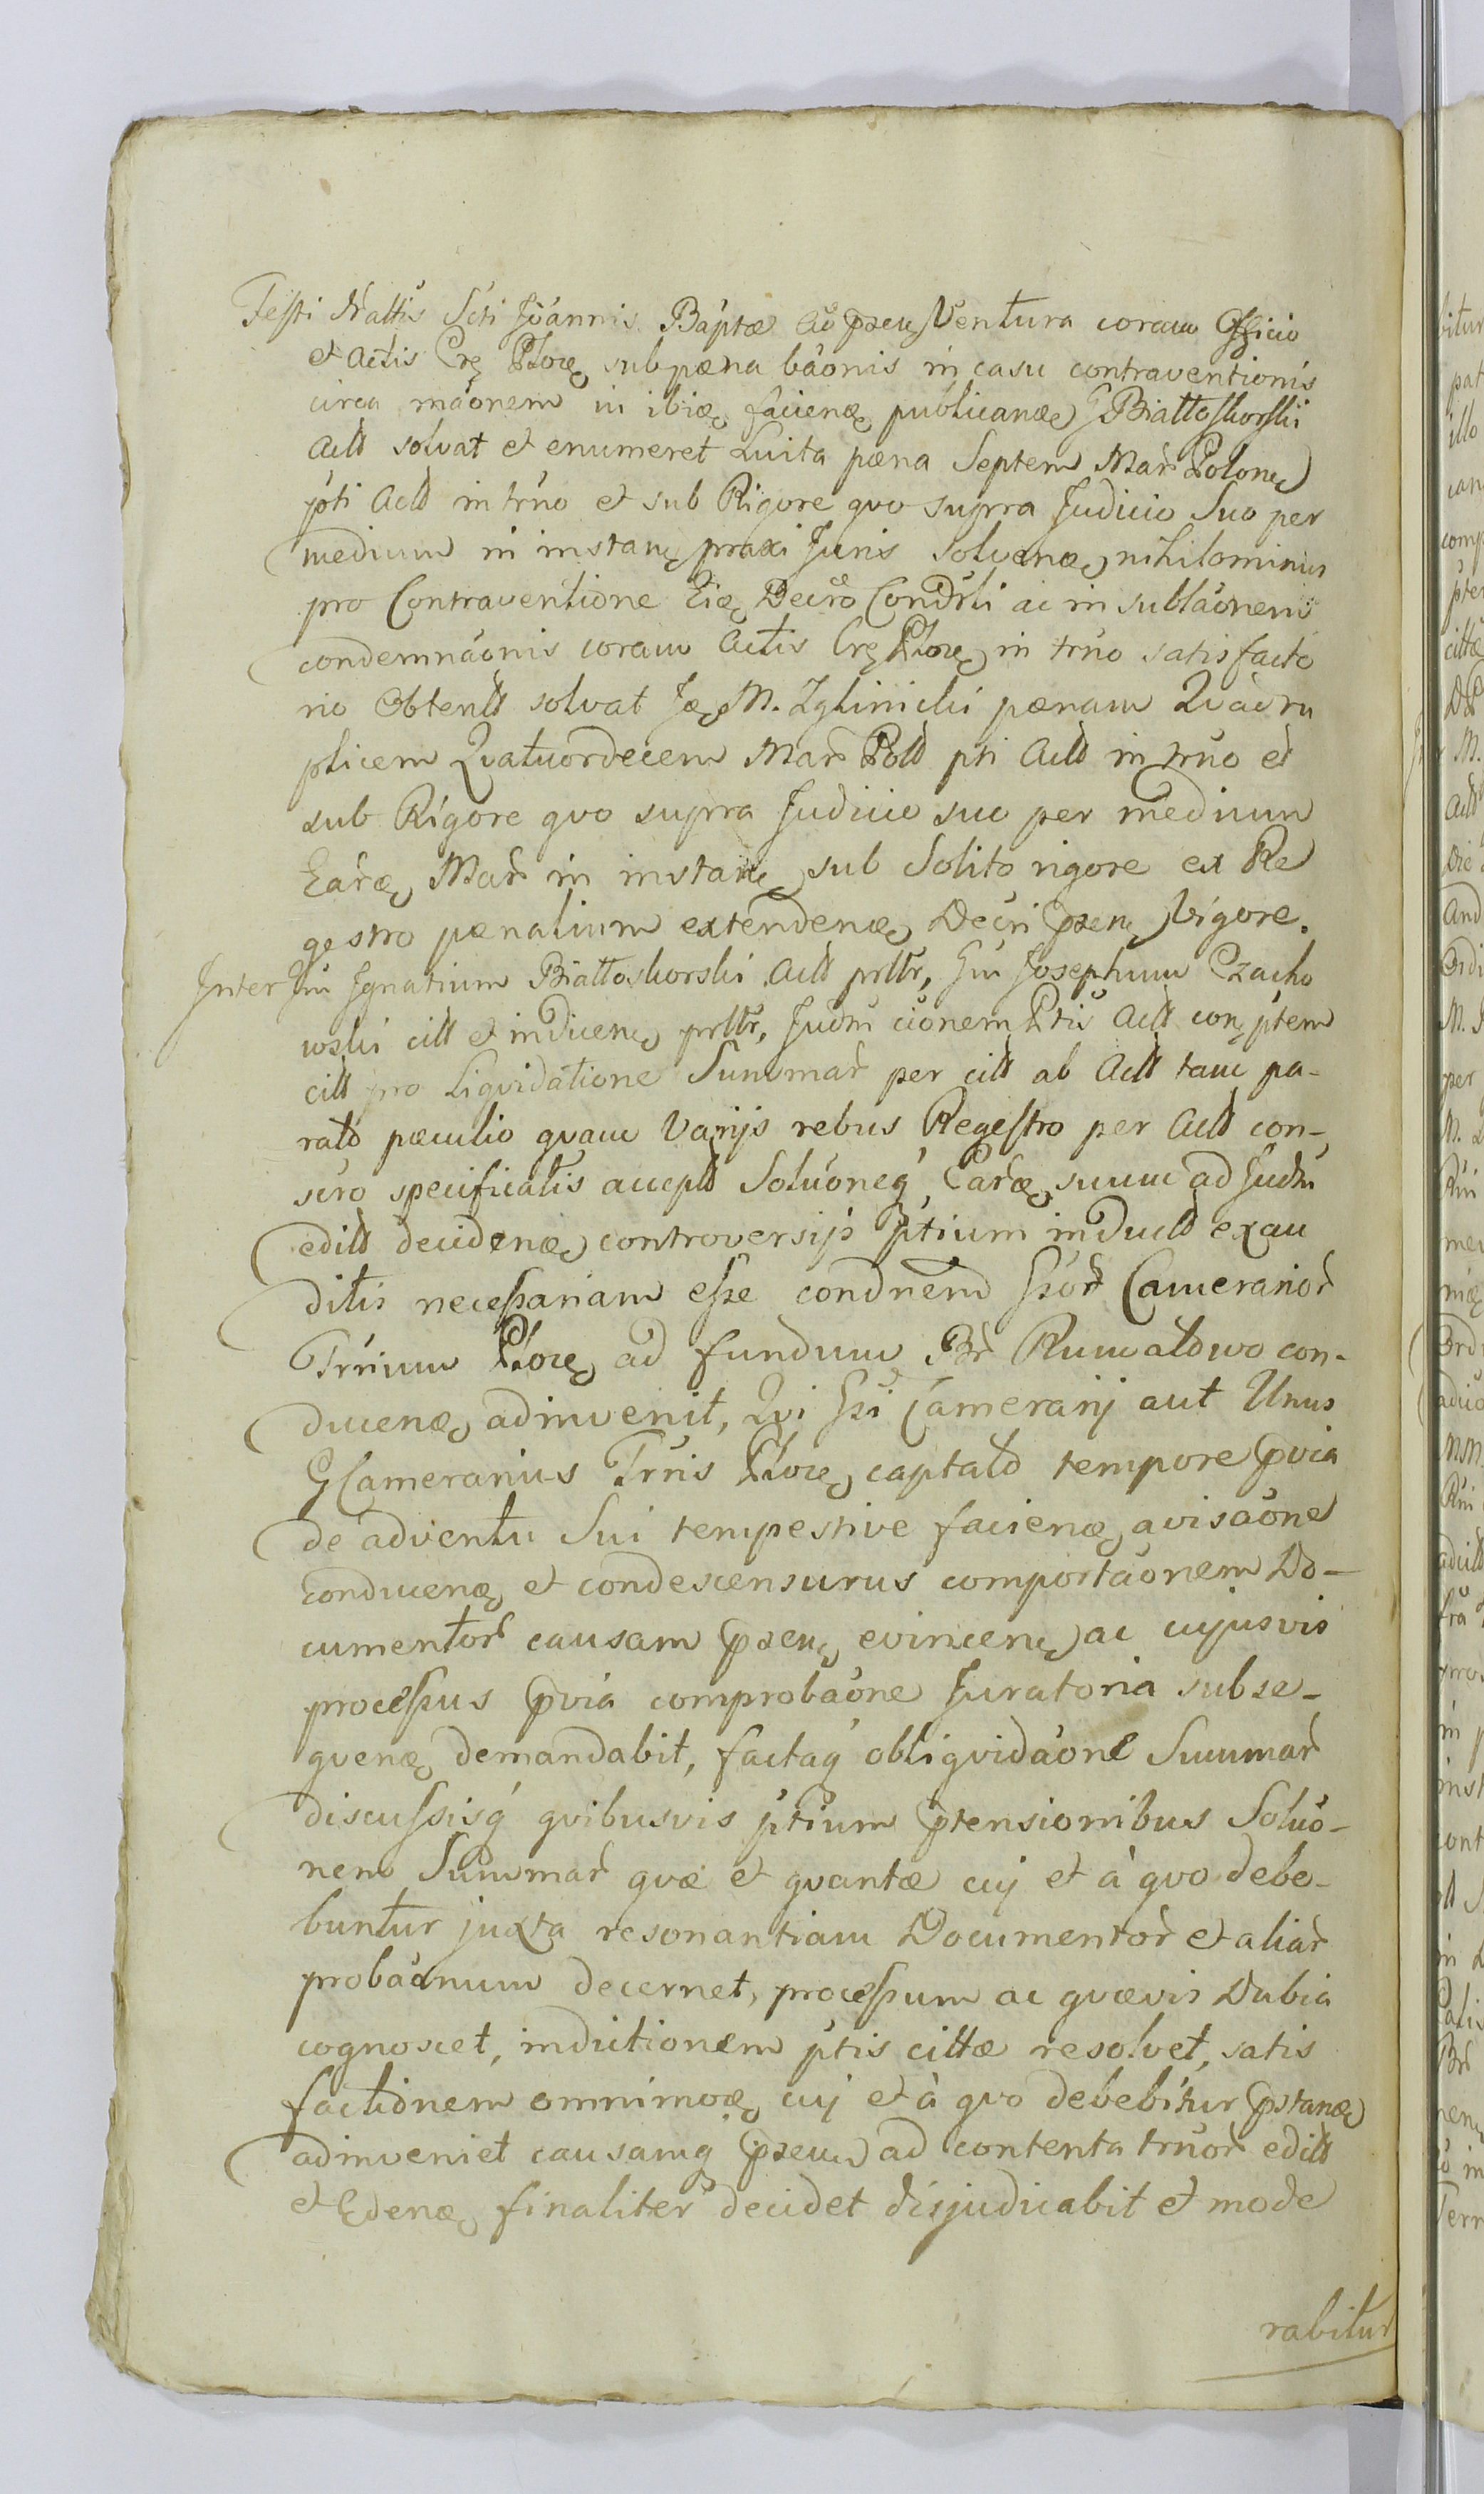 Festi Nattis Scti Joannis Baptæ ad præn Ventura coram Officio
et actis Crę Plocę sub pæna baonis in casu contraventionis
circa maonem in ibię faciend publicand G Białłoskorski
Actt solvat et enumeret Luita pæna Septem Mar Polonc
pti Actt in trno et sub Rigore quo supra Judicio Suo per
medium in instan praxi Juris solvend nihilominus
pro Contraventione Eię Decro Condrli ac in sublaonem
condemnaonis coram Actis Crę Plocę in trno satisfacto
rio Obtentt solvat Ję M. Zglinicki pænam Quadru
plicem Quatuordecem Mar Poll pti Actt in trno et
sub Rigore quo supra Judicio suo per medium
Earę Mar in instan sub Solito rigore ex Re
gestro pænalium extendend Decri præn Vigore.
Inter Gm Ignatium Białłoskorski Actt prltr, Gm Josephum Czacho
wski citt et indicen prltr, Judm cionem Ptis Actt con ptem
citt pro Liquidatione Summar per citt ab Actt tam pa-
rato pæculio quam Varijs rebus Regestro per Actt con-
scro specificatis accept Soluoneq Earę summ ad Judm
editt decidend controversijs ptium inductt exau
ditis necessariam esse condnem Gssor Camerarior
Trrium Plocę ad fundum Br Rumałdwo con-
ducend adinvenit, Qui Gssi Camerarij aut Unus
G Camerarius Trris Plocę captato tempore prvia
de adventu Sui tempestive faciend avisaone
conducend et condescensurus comportaonem Do-
cumentor causam præn evincen ac cujusvis
processus prvia comprobaone Juratoria subse-
quend demandabit, factaq obliquidaone Summar
discussisq quibusvis ptium prtensionibus Soluo-
nem Summar quæ et quantæ cuj et à quo debe-
buntur juxta resonantiam Documentor et aliar
probaonum decernet, processum ac quævis Dubia
cognoscet, indictionem ptis cittæ resolvet, satis
factionem omnimod cuj et à quo debebitur prstand
adinveniet causamq præn ad contenta trnor editt
et Edend finaliter decidet disjudicabit et mode
rabitur